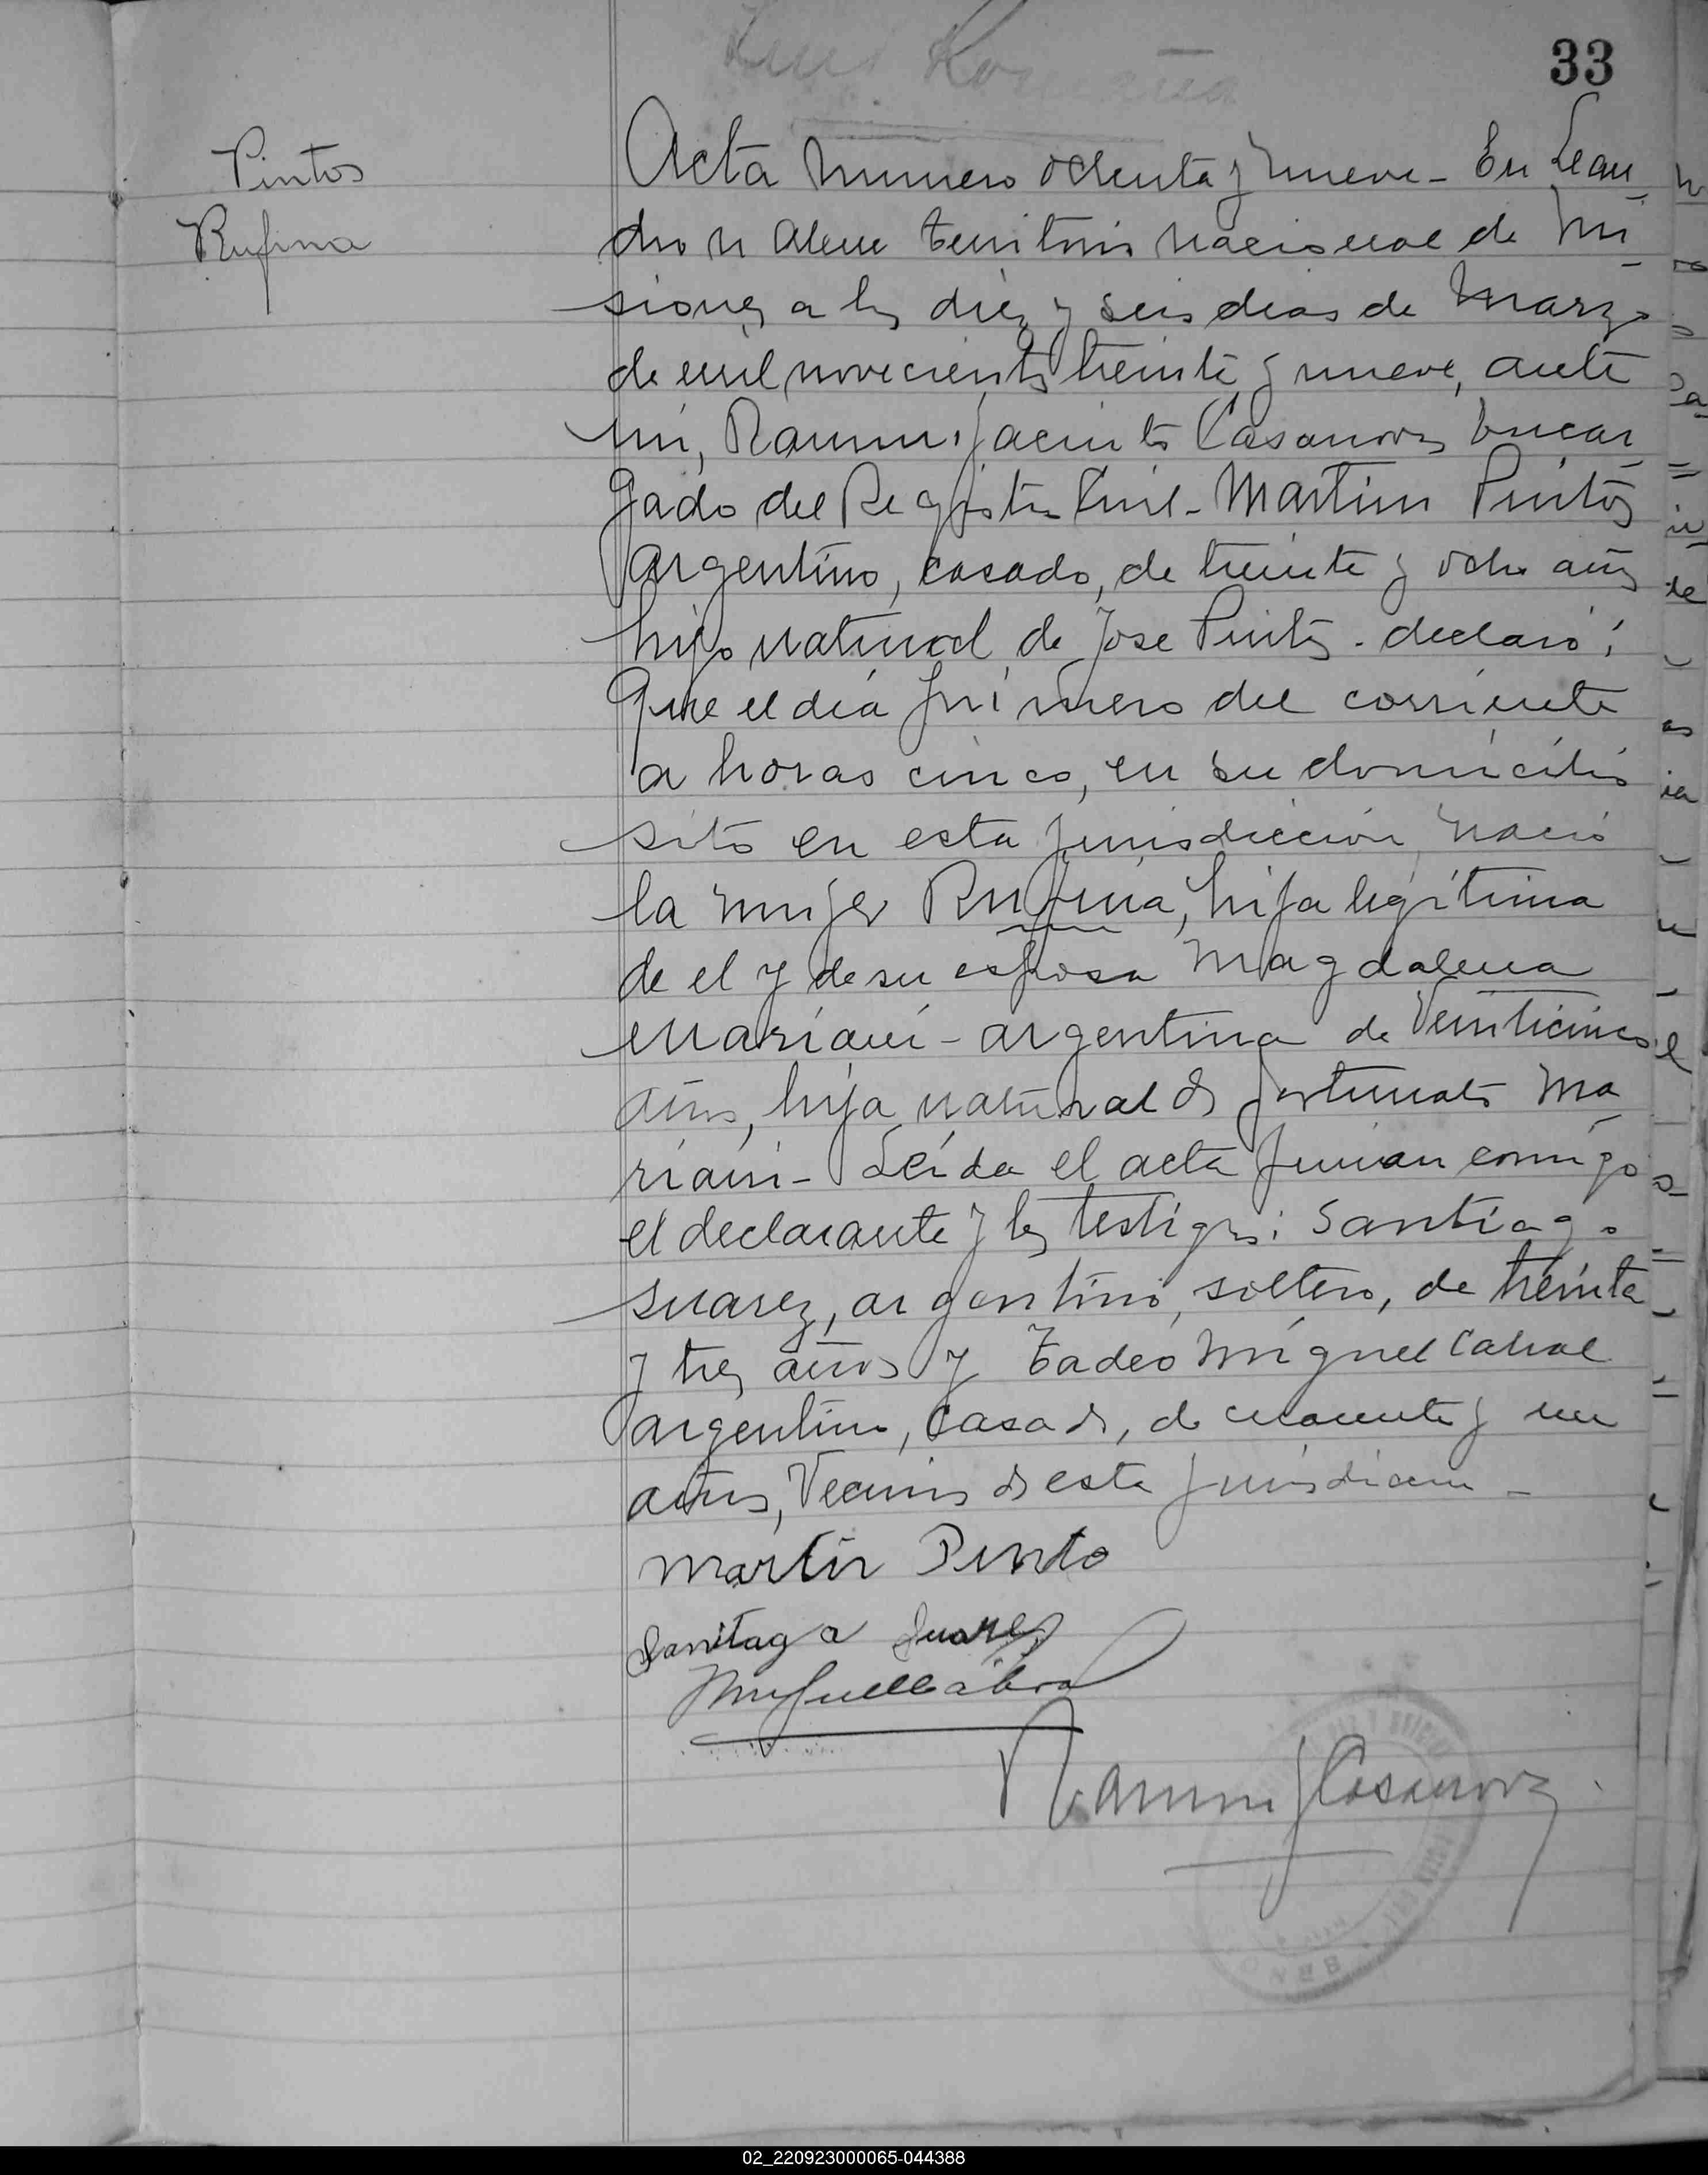 33
Pintos
Rufina
Acta numero ochenta y nueve - En Lean
dro N Alem territorio nacional de Mi
siones a los diez y seis dias de Marzo
de mil novecientos treinta y nueve, ante
mi, Ramon Jacinto Casanova Encar
gado del Registro Civil - Martin Pintos
argentino, casado, de treinta y ocho años
hijo natural de Jose Pintos - declaró:
Que el día primero del corriente
a horas cinco, en su domicilio
sito en esta jurisdiccion, nació
la mujer Rufina, hija legítima
de el y de su esposa Magdalena
Mariani - argentina de veinticinco
años, hija natural de Fortunato Ma
riani - Leída el acta firman conmigo
el declarante y los testigos: Santiago
Suarez, argentino, soltero, de treinta
y tres años y Tadeo Miguel Cabral
argentino, casado, de cuarenta y un
años, Vecinos de esta jurisdiccion -
Martin Pinto
Sanitago Suarez
Miguel Cabral
Ramon J Casanova
02_220923000065-044388